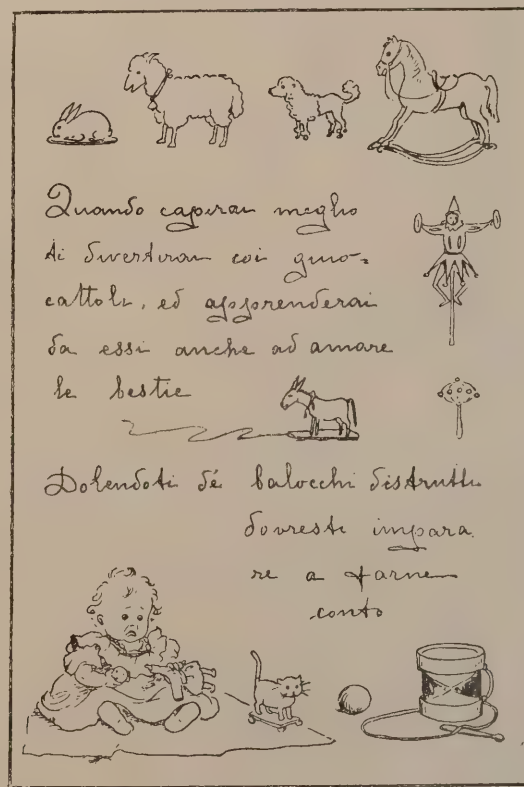 Quando capirai meglio
ti divertirai coi giuo-
cattoli, ed apprenderai
da essi anche ad amare
le bestie
Dolendoti dé balocchi distrutti
dovresti impara
re a farne
conto